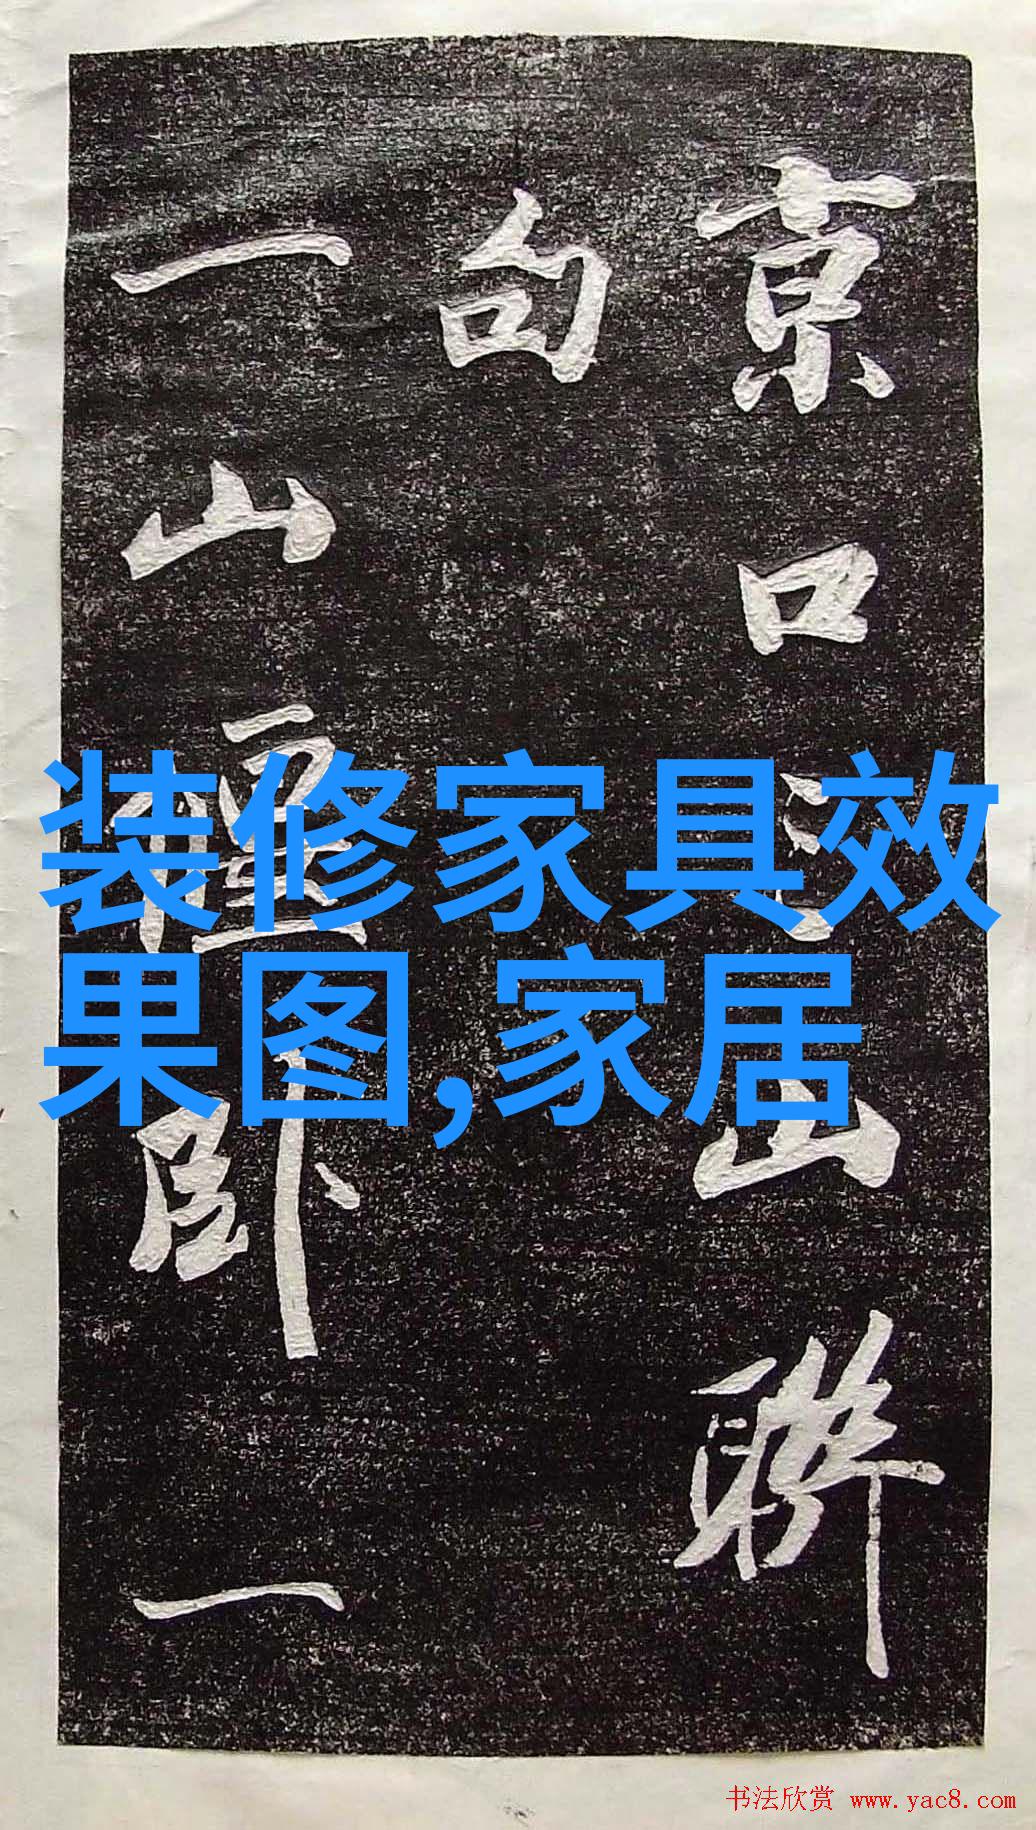 京口山聯
句
一山卧一
装修家具效
果图,家居
书法欣赏 www.yac8.com